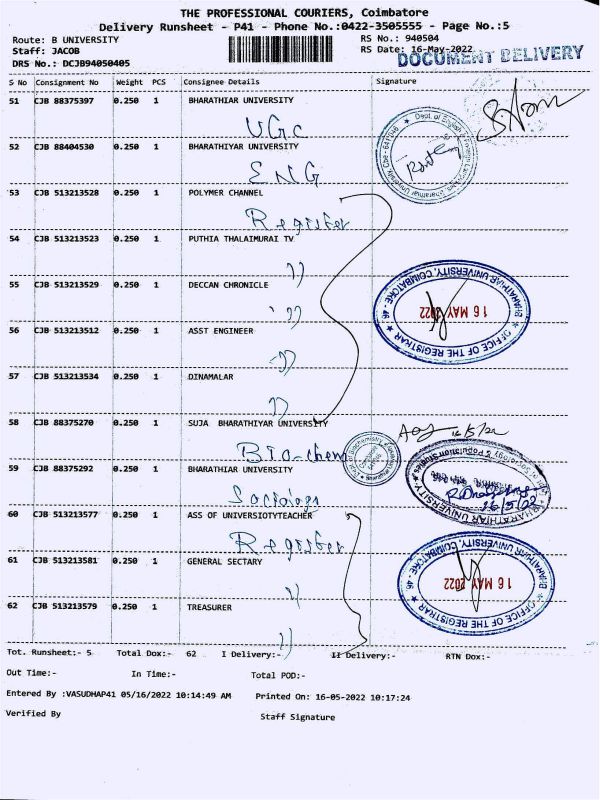 THE PROFESSIONAL COURIERS, Coimbatore
Delivery Runsheet - P41 - Phone No.:0422-3505555 - Page No.:5
Route: B UNIVERSITY
RS No.: 940504
Staff: JACOB
RS Date: 16-May-2022
DRS No.: DCJB94050405
DOCUMENT DELIVERY
S No Consignment No Weight PCS Consignee Details Signature
51 CJB 88375397 0.250 1 BHARATHIAR UNIVERSITY
UGC
52 CJB 88404530 0.250 1 BHARATHIYAR UNIVERSITY
ENG
53 CJB 513213528 0.250 1 POLYMER CHANNEL
Register
54 CJB 513213523 0.250 1 PUTHIA THALAIMURAI TV
))
55 CJB 513213529 0.250 1 DECCAN CHRONICLE
))
BHARATHIAR UNIVERSITY, COIMBATORE - 46
16 MAY 2022
OFFICE OF THE REGISTRAR
56 CJB 513213512 0.250 1 ASST ENGINEER
))
57 CJB 513213534 0.250 1 DINAMALAR
))
58 CJB 88375270 0.250 1 SUJA BHARATHIYAR UNIVERSITY
Bio-chem
59 CJB 88375292 0.250 1 BHARATHIAR UNIVERSITY
Sociology
16/5/22
BHARATHIAR UNIVERSITY
60 CJB 513213577 0.250 1 ASS OF UNIVERSIOTYTEACHER
Register
61 CJB 513213581 0.250 1 GENERAL SECTARY
))
BHARATHIAR UNIVERSITY, COIMBATORE - 46
16 MAY 2022
OFFICE OF THE REGISTRAR
62 CJB 513213579 0.250 1 TREASURER
))
Tot. Runsheet:- 5 Total Dox:- 62 I Delivery:- II Delivery:- RTN Dox:-
Out Time:- In Time:- Total POD:-
Entered By :VASUDHAP41 05/16/2022 10:14:49 AM Printed On: 16-05-2022 10:17:24
Verified By Staff Signature